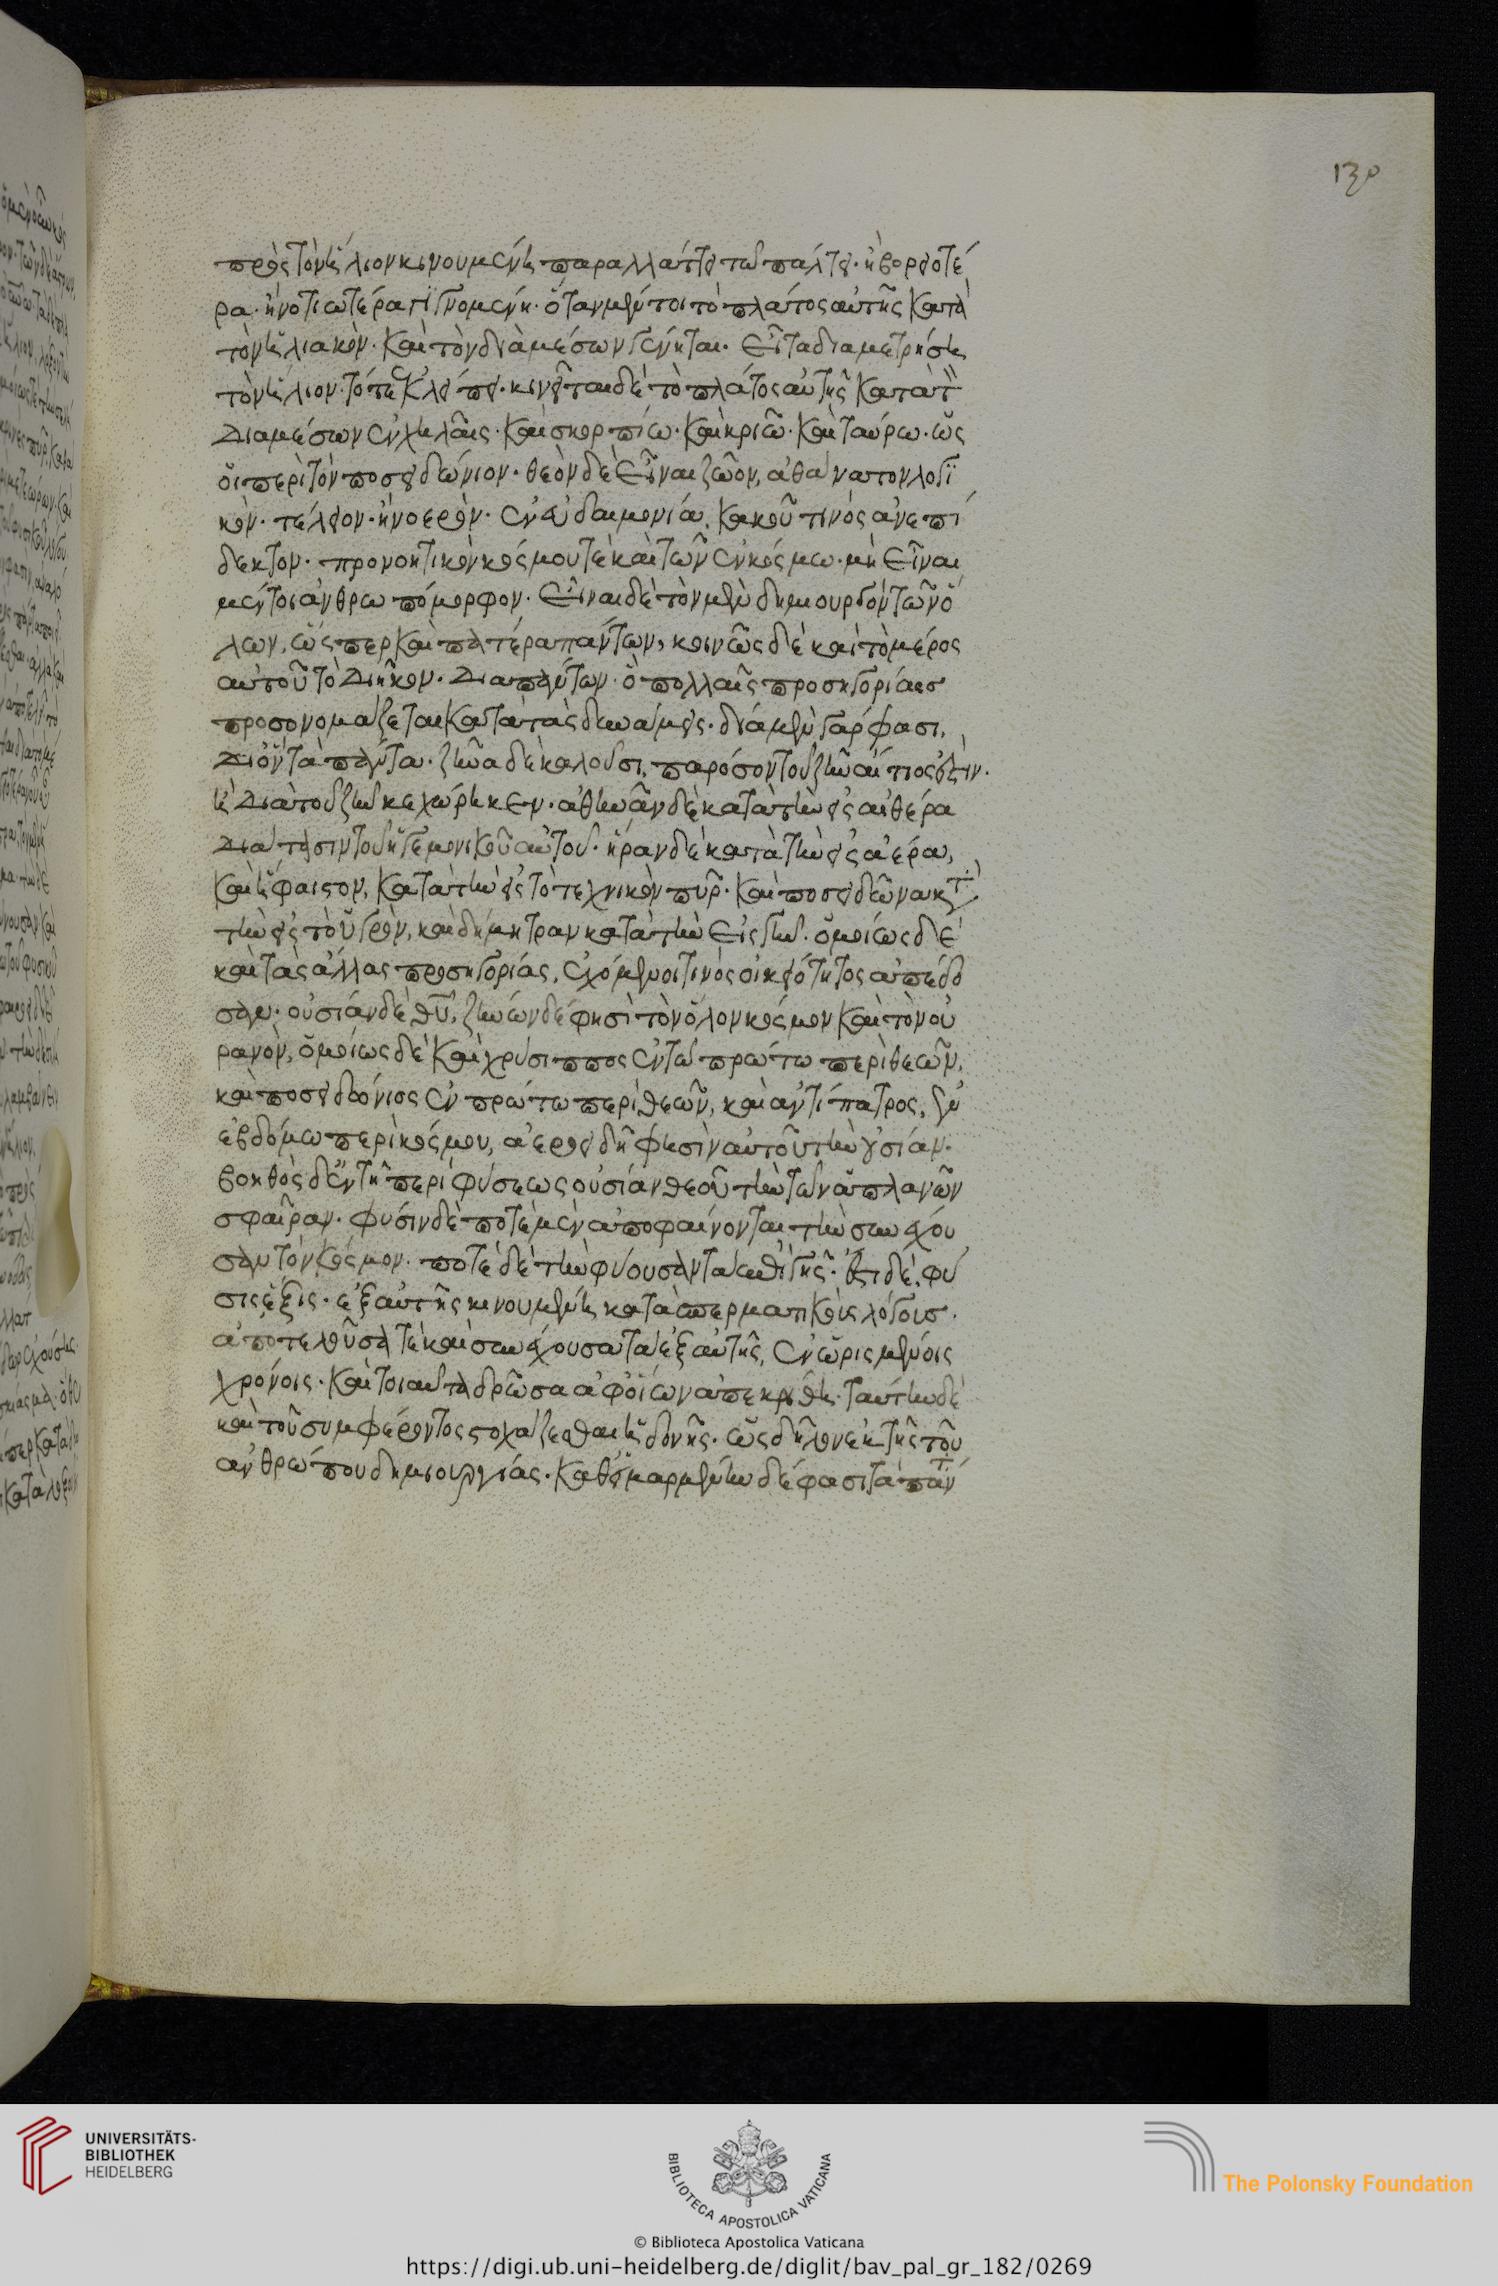 130
πρὸς τὸν ἥλιον κινουμένη παραλλάττει τῷ πλάτει· ἢ βορειοτέ
ρα· ἢ νοτιωτέρα γϊγνομένη· ὅταν μέντοι τὸ πλάτος αὐτῆς κατὰ
τὸν ἡλιακὸν· καὶ τὸν διὰ μέσων γένηται· εἶτα διαμετρήσῃ
τὸν ἥλιον· τότε ἐκλείπει· κινεῖται δὲ τὸ πλάτος αὐτῆς κατὰ τὸν
διαμέσων ἐν χηλαῖς· καὶ σκορπίω· καὶ κριῶ· καὶ ταύρω· ὥς
οἵ περὶ τὸν ποσειδώνιον· θεὸν δὲ εἶναι ζῶον, ἀθάνατον λογϊ
κὸν· τέλειον· ἢ νοερὸν· ἐν εὐδαιμονία, κακοῦ τινὸς ἀνεπί
δεκτον· προνοητικὸν κόσμου τὲ καὶ τῶν ἐν κόσμω· μὴ εἶναι
μέντοι ἀνθρωπόμορφον· εἶναι δὲ τὸν μὲν δημιουργὸν τῶν ὅ
λων, ὥσπερ καὶ πατέρα πάντων, κοινῶς δὲ καὶ τὸ μέρος
αὐτοῦ τὸ διῆκον· διαπάντων· ὃ πολλαῖς προσηγορίαις
προσονομάζεται κατὰ τὰς δυνάμεις· δία μὲν γάρ φασι,
δι ὃν τὰ πάντα· ζῆνα δὲ καλοῦσι, παρόσον τοῦ ζῆν αἴτιος ἐστὶν·
ἢ διὰ τοῦ ζῆν κεχώρηκεν· ἀθηνᾶν δὲ κατὰ τὴν εἰς αἰθέρα
διάτασιν τοῦ ἡγεμονικοῦ αὐτοῦ· ἥραν δὲ κατὰ τὴν εἰς ἀέρα,
καὶ ἥφαιστον, κατὰ τὴν εἰς τὸ τεχνικὸν πῦρ· καὶ ποσειδῶνα κατὰ
τὴν εἰς τὸ ὑγρὸν, καὶ δήμητραν κατὰ τὴν εἰς γῆν· ὁμοίως δὲ
καὶ τὰς ἄλλας προσηγορίας, ἐχόμενοι τινὸς οἰκειότητος ἀπέδο
σαν· οὐσίαν δὲ θυ, ζήνων δέ φησὶ τὸν ὅλον κόσμον καὶ τὸν οὐ
ρανὸν, ὁμοίως δὲ καὶ χρύσιππος ἐν τῶ πρώτω περὶ θεῶν,
καὶ ποσειδώνιος ἐν πρώτω περὶ θεῶν, καὶ ἀντίπατρος, ἐν
ἑβδόμω περὶ κόσμου, ἀεροειδῆ φησὶν αὐτοῦ τὴν οὐσίαν·
βοηθὸς δὲ ἐν τῇ περὶ φύσεως οὐσίαν θεοῦ τὴν τῶν ἀπλανῶν
σφαῖραν· φύσιν δὲ ποτὲ μὲν ἀποφαίνονται τὴν συνέχου
σαν τὸν κόσμον· ποτὲ δὲ τὴν φύουσαν τὰ ἐπὶ γῆς· ἔστι δὲ, φύ
σις ἕξις· ἐξ αὑτῆς κινουμένη κατὰ σπερματικοὺς λόγους·
ἀποτελοῦσά τε καὶ συνέχουσα τὰ ἐξ αὐτῆς, ἐν ὡρισμένοις
χρόνοις· καὶ τοιαῦτα δρῶσα ἀφ οἵων ἀπεκρίθη· ταύτην δὲ
καὶ τοῦ συμφέροντος στοχάζεσθαι ἡδονῆς· ὡς δῆλον ἐκ τῆς τοῦ
ἀνθρώπου δημιουργίας· καθ εἱμαρμένην δέ φασι τὰ πάντ
UNIVERSITÄTS-
BIBLIOTHEK
HEIDELBERG
BIBLIOTECA APOSTOLICA VATICANA
The Polonsky Foundation
© Biblioteca Apostolica Vaticana
https://digi.ub.uni-heidelberg.de/diglit/bav_pal_gr_182/0269